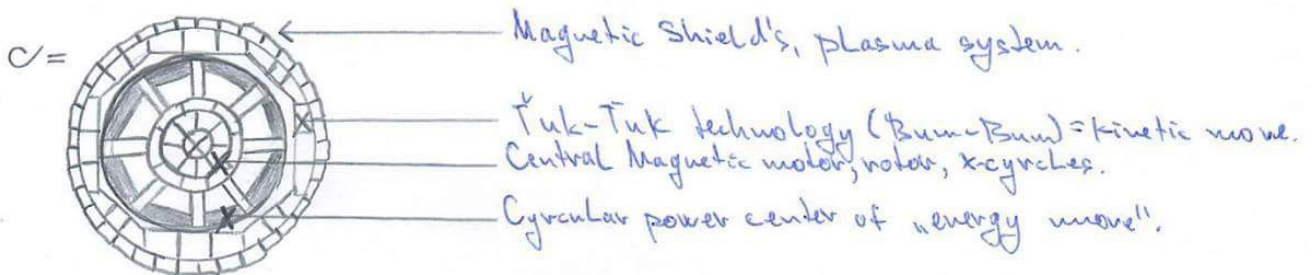 C =
Magnetic Shield's, plasma system.
Ťuk-Ťuk technology (Bum-Bum) = kinetic move.
Central Magnetic motor, rotor, x-cyrcles.
Cyrcular power center of „energy move".